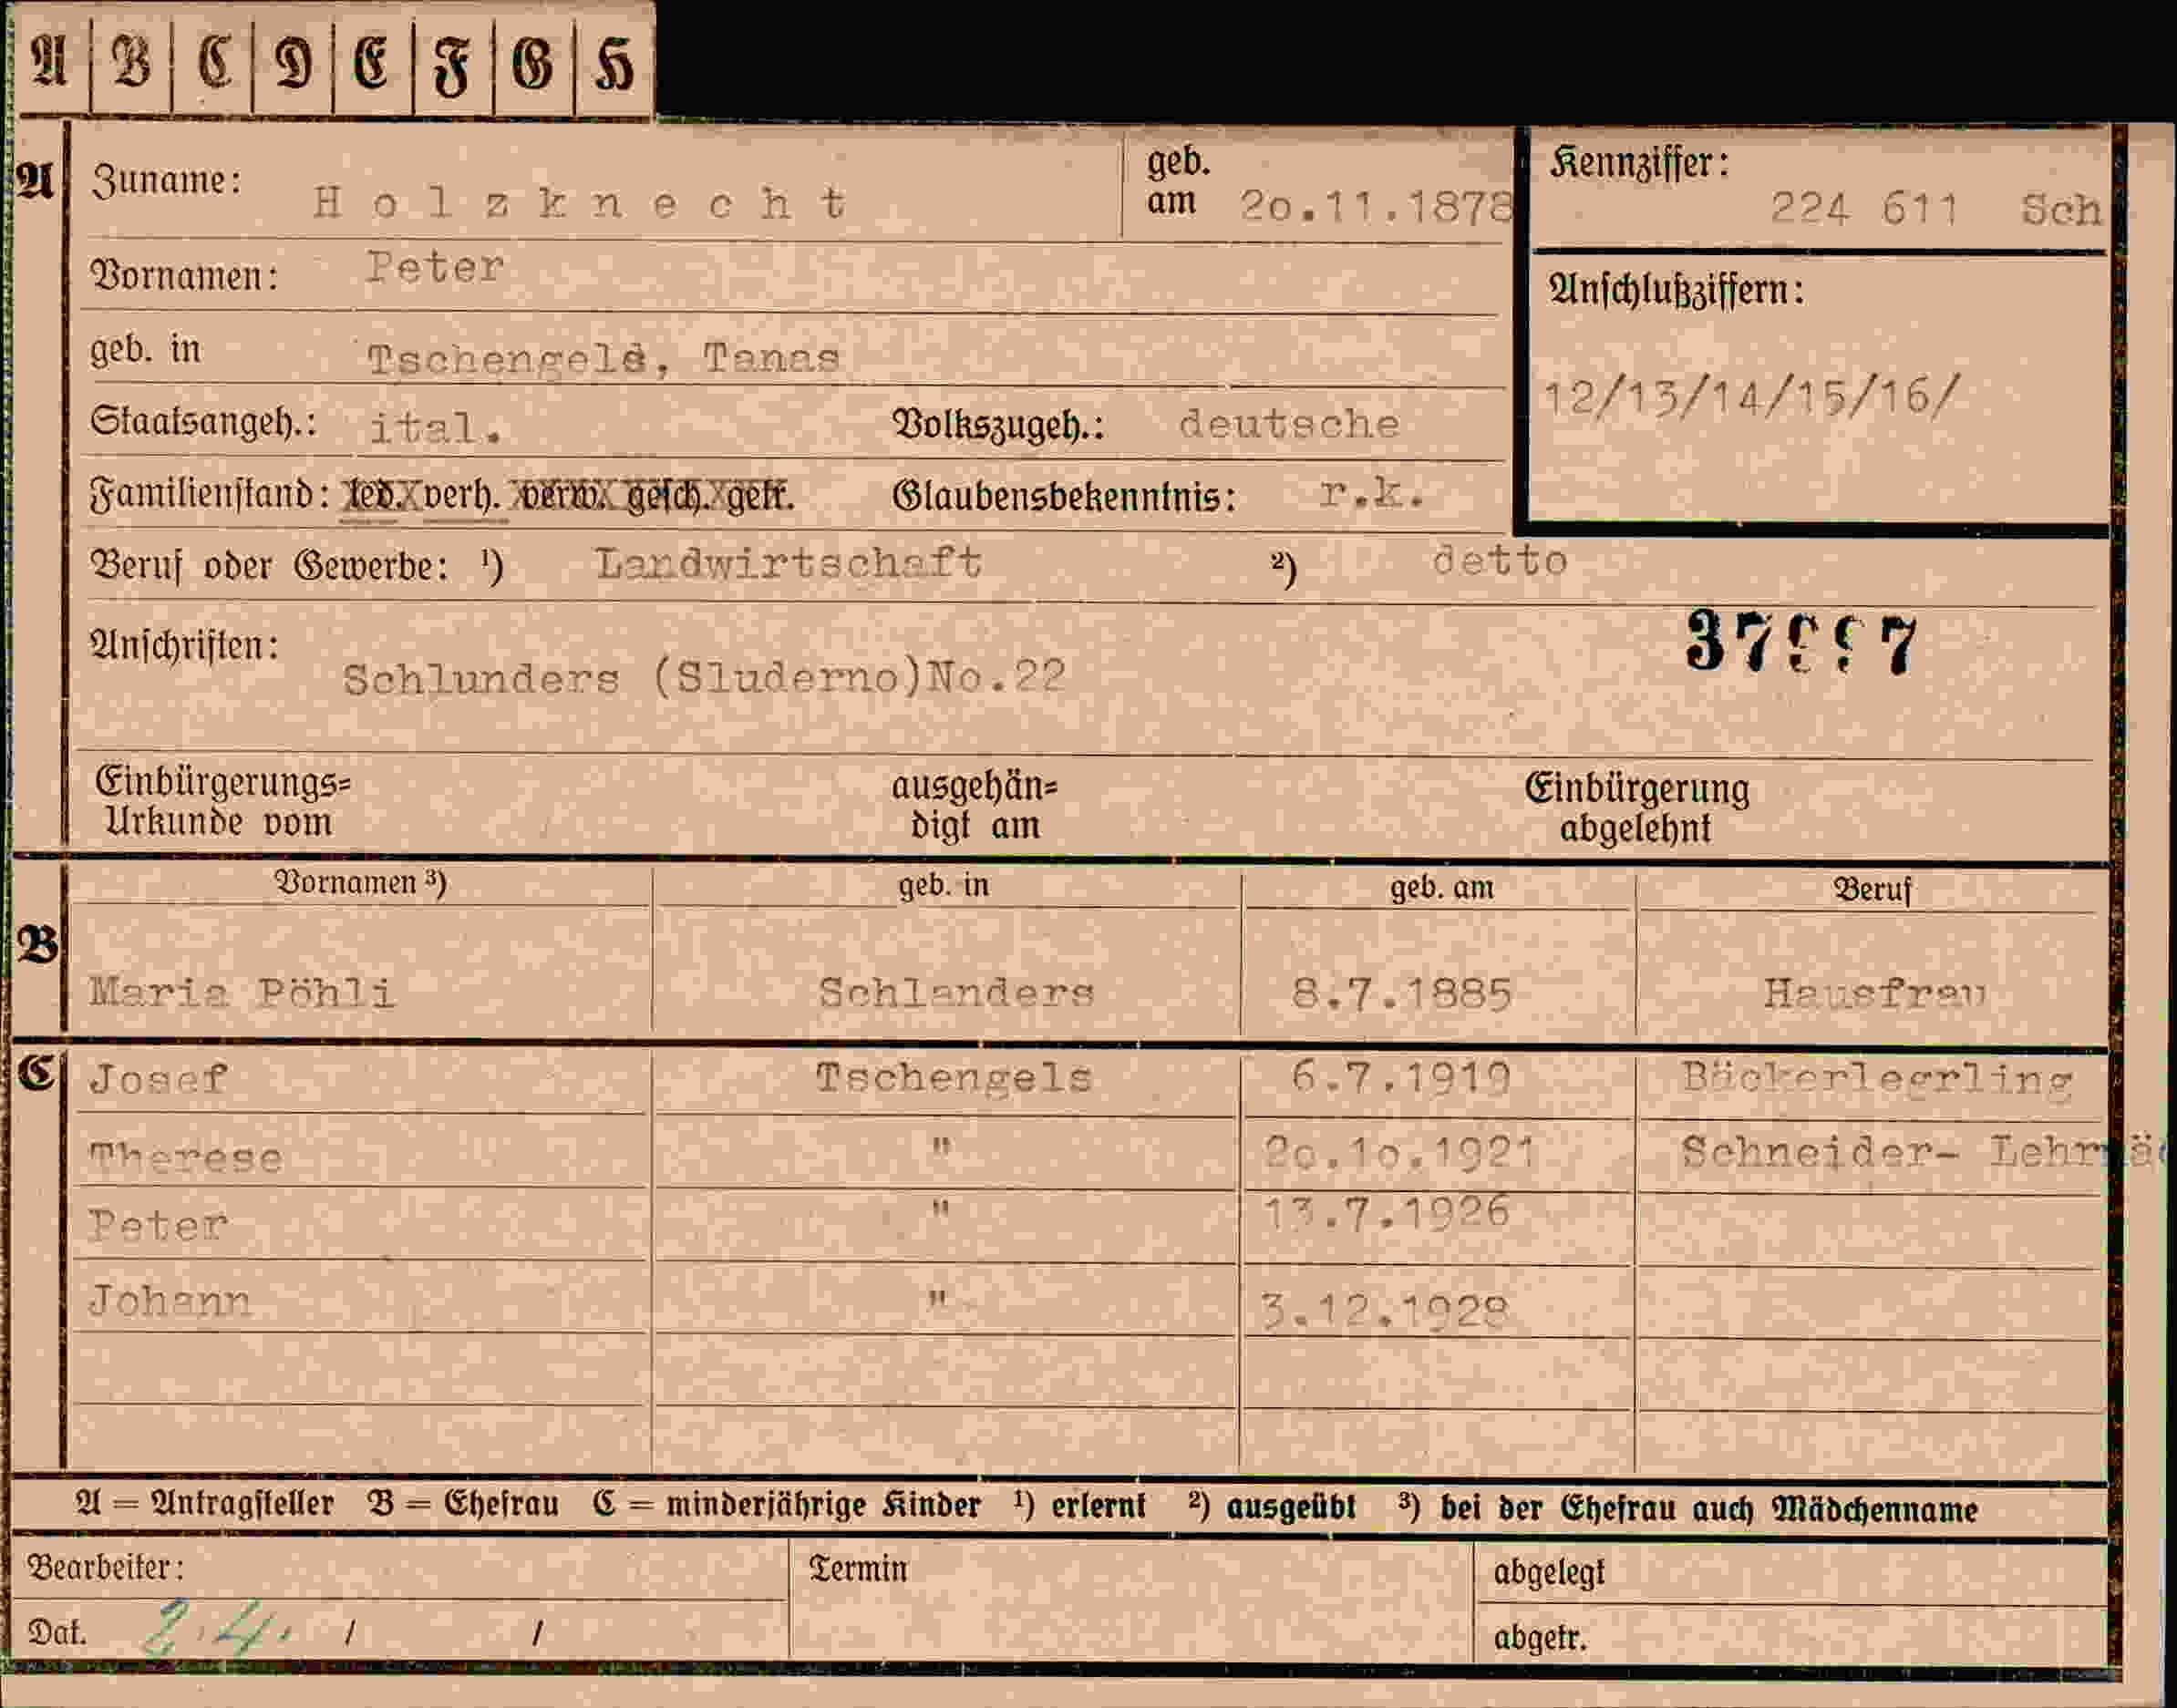 A B C D E F G H
A Zuname: Holzknecht geb. am 20.11.1878 Kennziffer: 224 611 Sch
Vornamen: Peter
Anschlußziffern:
geb. in Tschengels, Tanas
12/13/14/15/16/
Staatsangeh.: ital. Volkszugeh.: deutsche
Familienstand: led. verh. verw. gesch. getr. Glaubensbekenntnis: r.k.
Beruf oder Gewerbe: ¹) Landwirtschaft ²) detto
Anschriften: Schlunders (Sluderno)No.22
Einbürgerungs= Urkunde vom ausgehän= digt am Einbürgerung abgelehnt
Vornamen ³) geb. in geb. am Beruf
B Maria Pöhli Schlanders 8.7.1885 Hausfrau
C Josef Tschengels 6.7.1919 Bäckerleerling
Therese " 20.10.1921 Schneider- Lehrmäd
Peter " 13.7.1926
Johann " 3.12.1928
A = Antragsteller B = Ehefrau C = minderjährige Kinder ¹) erlernt ²) ausgeübt ³) bei der Ehefrau auch Mädchenname
Bearbeiter: Termin abgelegt
Dat. 2.4. / / abgetr.